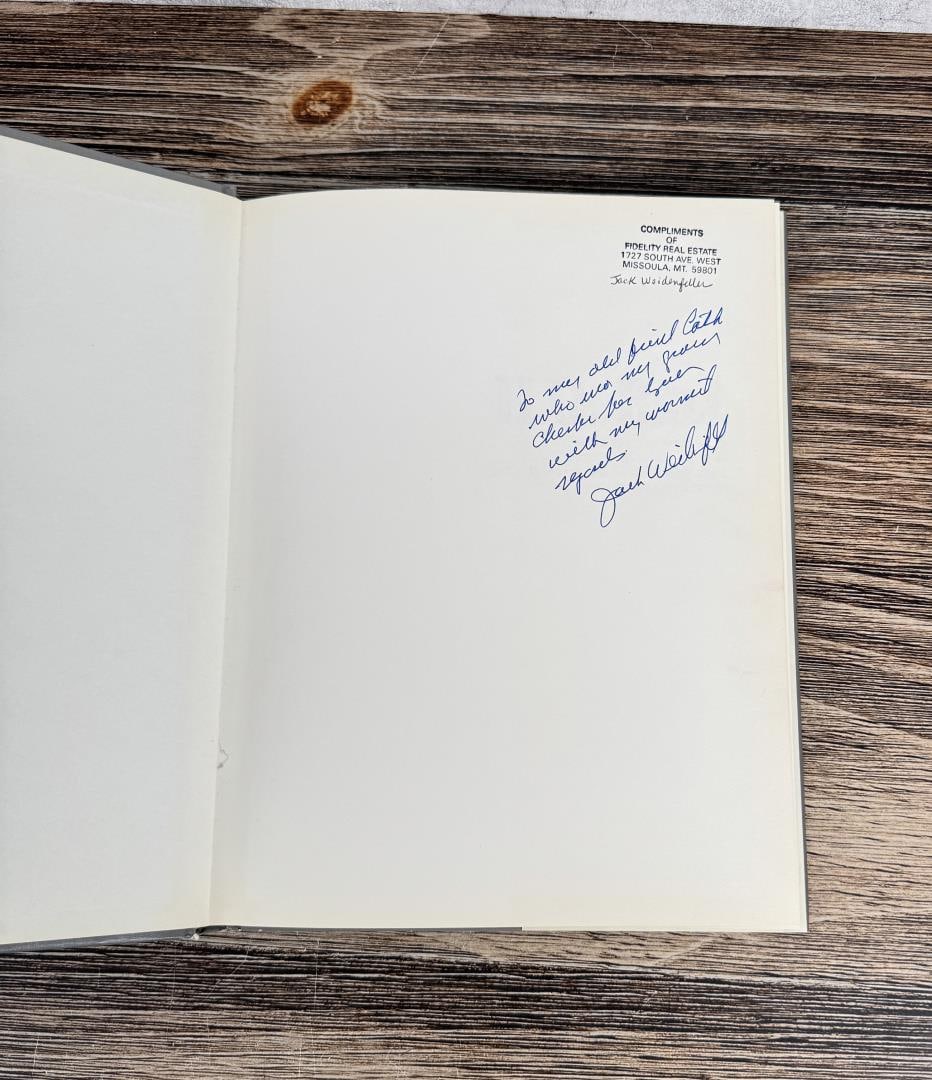 COMPLIMENTS
OF
FIDELITY REAL ESTATE
1727 SOUTH AVE. WEST
MISSOULA, MT. 59801
Jack Weidenfeller
To my old friend
who was my
with my warmest
regards.
Jack